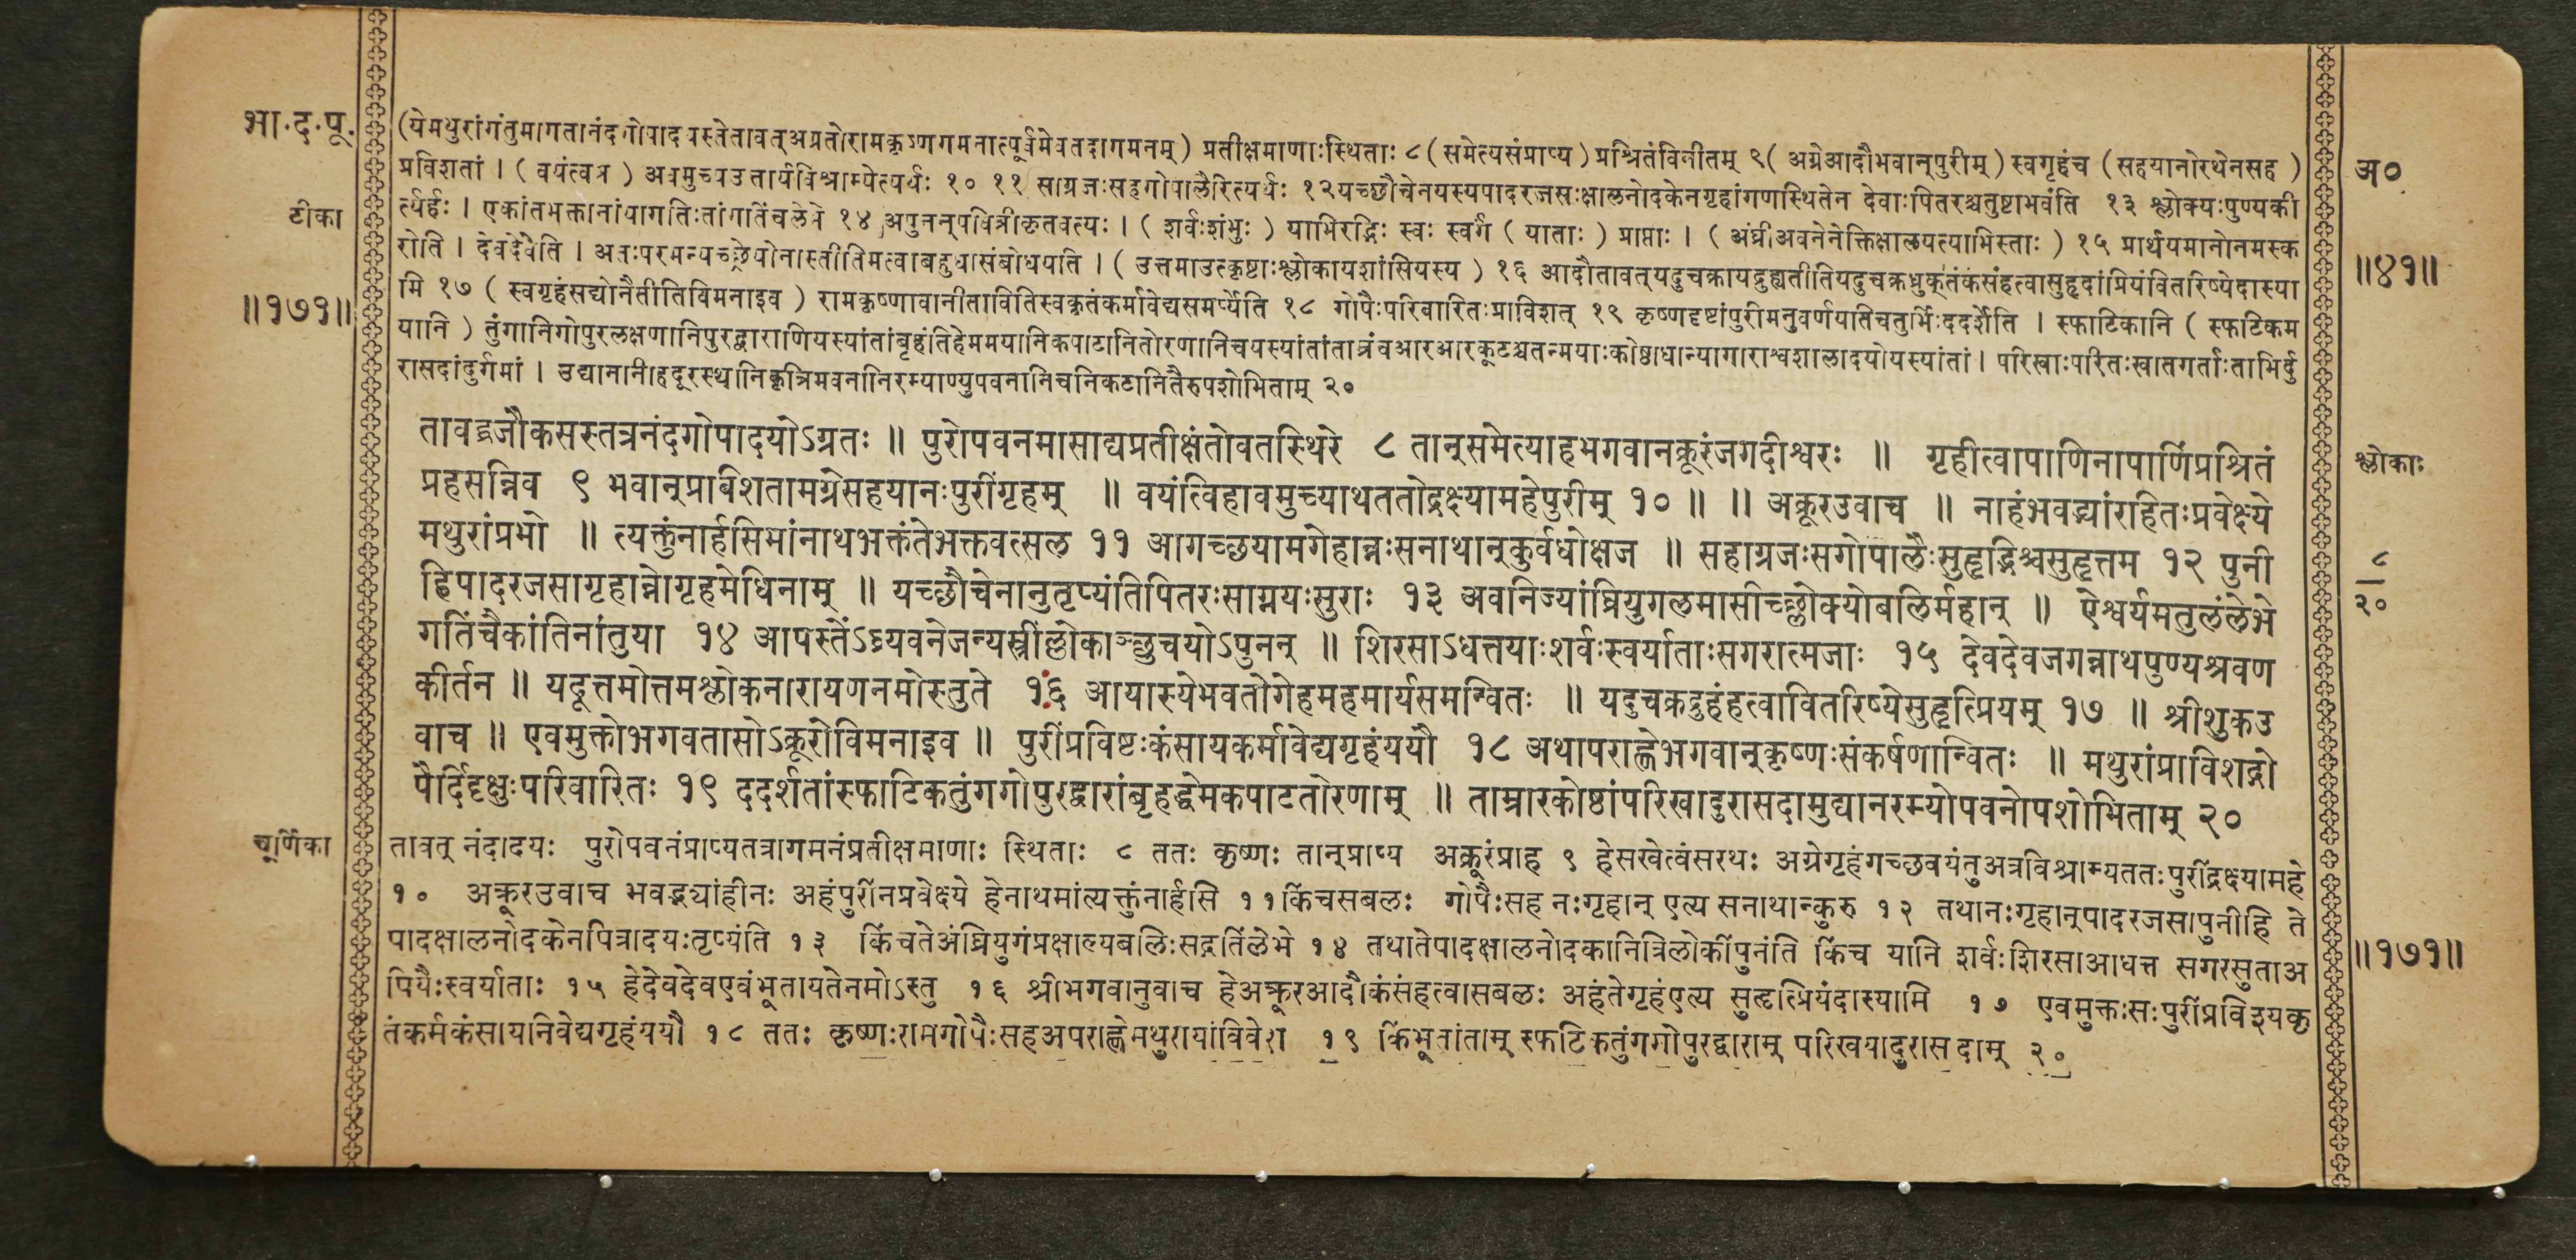 भा.द.पू.
(येमथुरांगंतुमागतानंदगोपादयस्तेतावत्अग्रतोरामकृष्णगमनात्पूर्वमेवतदागमनम्) प्रतीक्षमाणाःस्थिताः ८ (समेत्यसंप्राप्य) प्रश्रितंविनीतम् ९ ( अग्रेआदौभवान्पुरीम्) स्वगृहंच (सहयानोरथेनसह )
अ०
प्रविशतां । ( वयंत्वत्र ) अवमुच्यउत्तार्यविश्राम्येत्यर्थः १० ११ साग्रजःसहगोपालैरित्यर्थः १२ यच्छौचेनयस्यपादरजसःक्षालनोदकेनगृहांगणस्थितेन देवाःपितरश्चतुष्टाभवंति १३ श्लोक्यःपुण्यकी
टीका
र्त्यर्हः । एकांतभक्तानांयागतिःतांगतिंचलेभे १४ अपुनन्पवित्रीकृतवत्यः । ( शर्वःशंभुः ) याभिरद्भिः स्वः स्वर्गं ( याताः ) प्राप्ताः । ( अंघ्रीअवनेनेक्तिक्षालयत्याभिस्ताः ) १५ प्रार्थयमानोनमस्क
रोति । देवदेवेति । अतःपरमन्यच्छ्रेयोनास्तीतिमत्वाबहुधासंबोधयति । ( उत्तमाउत्कृष्टाःश्लोकायशांसियस्य ) १६ आदौतावत्यदुचक्रायद्रुह्यतीतियदुचक्रध्रुक्तंकंसंहत्वासुहृदांप्रियंवितरिष्येदास्या
॥४१॥
॥१७१॥
मि १७ ( स्वगृहंसद्योनैतीतिविमनाइव ) रामकृष्णावानीतावितिस्वकृतंकर्मावेद्यसमर्प्येति १८ गोपैःपरिवारितःप्राविशत् १९ कृष्णदृष्टांपुरीमनुवर्णयतिचतुर्भिःददर्शेति । स्फाटिकानि ( स्फटिकम
यानि ) तुंगानिगोपुरलक्षणानिपुरद्वाराणियस्यांतांबृहंतिहेममयानिकपाटानितोरणानिचयस्यांतांताम्रंचआरआरकूटश्चतन्मयाःकोष्ठाधान्यागाराश्वशालादयोयस्यांतां । परिखाःपरितःखातगर्ताःताभिर्दु
रासदांदुर्गमां । उद्यानानीहदूरस्थानिकृत्रिमवनानिरम्याण्युपवनानिचनिकटानितैरुपशोभिताम् २०
तावद्व्रजौकसस्तत्रनंदगोपादयोऽग्रतः ॥ पुरोपवनमासाद्यप्रतीक्षंतोवतस्थिरे ८ तान्समेत्याहभगवानक्रूरंजगदीश्वरः ॥ गृहीत्वापाणिनापाणिंप्रश्रितं
श्लोकाः
प्रहसन्निव ९ भवान्प्राविशतामग्रेसहयानःपुरींगृहम् ॥ वयंत्विहावमुच्याथततोद्रक्ष्यामहेपुरीम् १० ॥ ॥ अक्रूरउवाच ॥ नाहंभवद्भ्यांरहितःप्रवेक्ष्ये
मथुरांप्रभो ॥ त्यक्तुंनार्हसिमांनाथभक्तंतेभक्तवत्सल ११ आगच्छयामगेहान्नःसनाथान्कुर्वधोक्षज ॥ सहाग्रजःसगोपालैःसुहृद्भिश्चसुहृत्तम १२ पुनी
८
हिपादरजसागृहान्नोगृहमेधिनाम् ॥ यच्छौचेनानुतृप्यंतिपितरःसाग्नयःसुराः १३ अवनिज्यांघ्रियुगलमासीच्छ्लोक्योबलिर्महान् ॥ ऐश्वर्यमतुलंलेभे
२०
गतिंचैकांतिनांतुया १४ आपस्तेंऽघ्र्यवनेजन्यस्त्रींल्लोकाञ्छुचयोऽपुनन् ॥ शिरसाऽधत्तयाःशर्वःस्वर्याताःसगरात्मजाः १५ देवदेवजगन्नाथपुण्यश्रवण
कीर्तन ॥ यदूत्तमोत्तमश्लोकनारायणनमोस्तुते १६ आयास्येभवतोगेहमहमार्यसमन्वितः ॥ यदुचक्रद्रुहंहत्वावितरिष्येसुहृत्प्रियम् १७ ॥ श्रीशुकउ
वाच ॥ एवमुक्तोभगवतासोऽक्रूरोविमनाइव ॥ पुरींप्रविष्टःकंसायकर्मावेद्यगृहंययौ १८ अथापराह्णेभगवान्कृष्णःसंकर्षणान्वितः ॥ मथुरांप्राविशद्गो
पैर्दिदृक्षुःपरिवारितः १९ ददर्शतांस्फाटिकतुंगगोपुरद्वारांबृहद्धेमकपाटतोरणाम् ॥ ताम्रारकोष्ठांपरिखादुरासदामुद्यानरम्योपवनोपशोभिताम् २०
चूर्णिका
तावत् नंदादयः पुरोपवनंप्राप्यतत्रागमनंप्रतीक्षमाणाः स्थिताः ८ ततः कृष्णः तान्प्राप्य अक्रूरंप्राह ९ हेसखेत्वंसरथः अग्रेगृहंगच्छवयंतुअत्रविश्राम्यततःपुरींद्रक्ष्यामहे
१० अक्रूरउवाच भवद्भ्यांहीनः अहंपुरींनप्रवेक्ष्ये हेनाथमांत्यक्तुंनार्हसि ११ किंचसबलः गोपैःसह नःगृहान् एत्य सनाथान्कुरु १२ तथानःगृहान्पादरजसापुनीहि ते
पादक्षालनोदकेनपित्रादयःतृप्यंति १३ किंचतेअंघ्रियुगंप्रक्षाल्यबलिःसद्गतिंलेभे १४ तथातेपादक्षालनोदकानित्रिलोकींपुनंति किंच यानि शर्वःशिरसाआधत्त सगरसुताअ
॥१७१॥
पियैःस्वर्याताः १५ हेदेवदेवएवंभूतायतेनमोऽस्तु १६ श्रीभगवानुवाच हेअक्रूरआदौकंसंहत्वासबलः अहंतेगृहंएत्य सुहृत्प्रियंदास्यामि १७ एवमुक्तःसःपुरींप्रविश्यकृ
तंकर्मकंसायनिवेद्यगृहंययौ १८ ततः कृष्णःरामगोपैःसहअपराह्णेमथुरायांविवेश १९ किंभूतांताम् स्फटिकतुंगगोपुरद्वाराम् परिखयादुरासदाम् २०